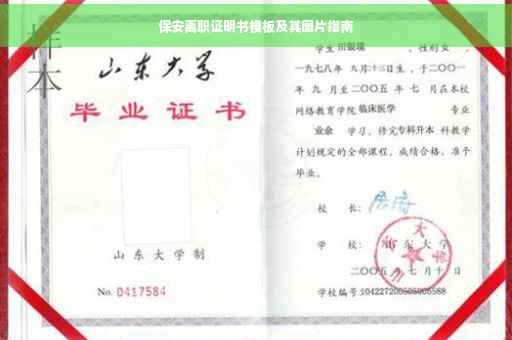 保安离职证明书模板及其图片指南
样本
山东大学
毕业证书
山东大学制
No. 0417584
学生 田银璞 ，性别 女 ，
一九七八年 九月十三日生，于二〇〇一
年 九 月至二〇〇五 年 七 月在本校
网络教育学院 临床医学 专业
业余 学习，修完专科升本 科教学
计划规定的全部课程，成绩合格，准予
毕业。
校 长：
学 校： 山东大学
二〇〇五 年 七 月 十 日
学校编号：104227200505005588